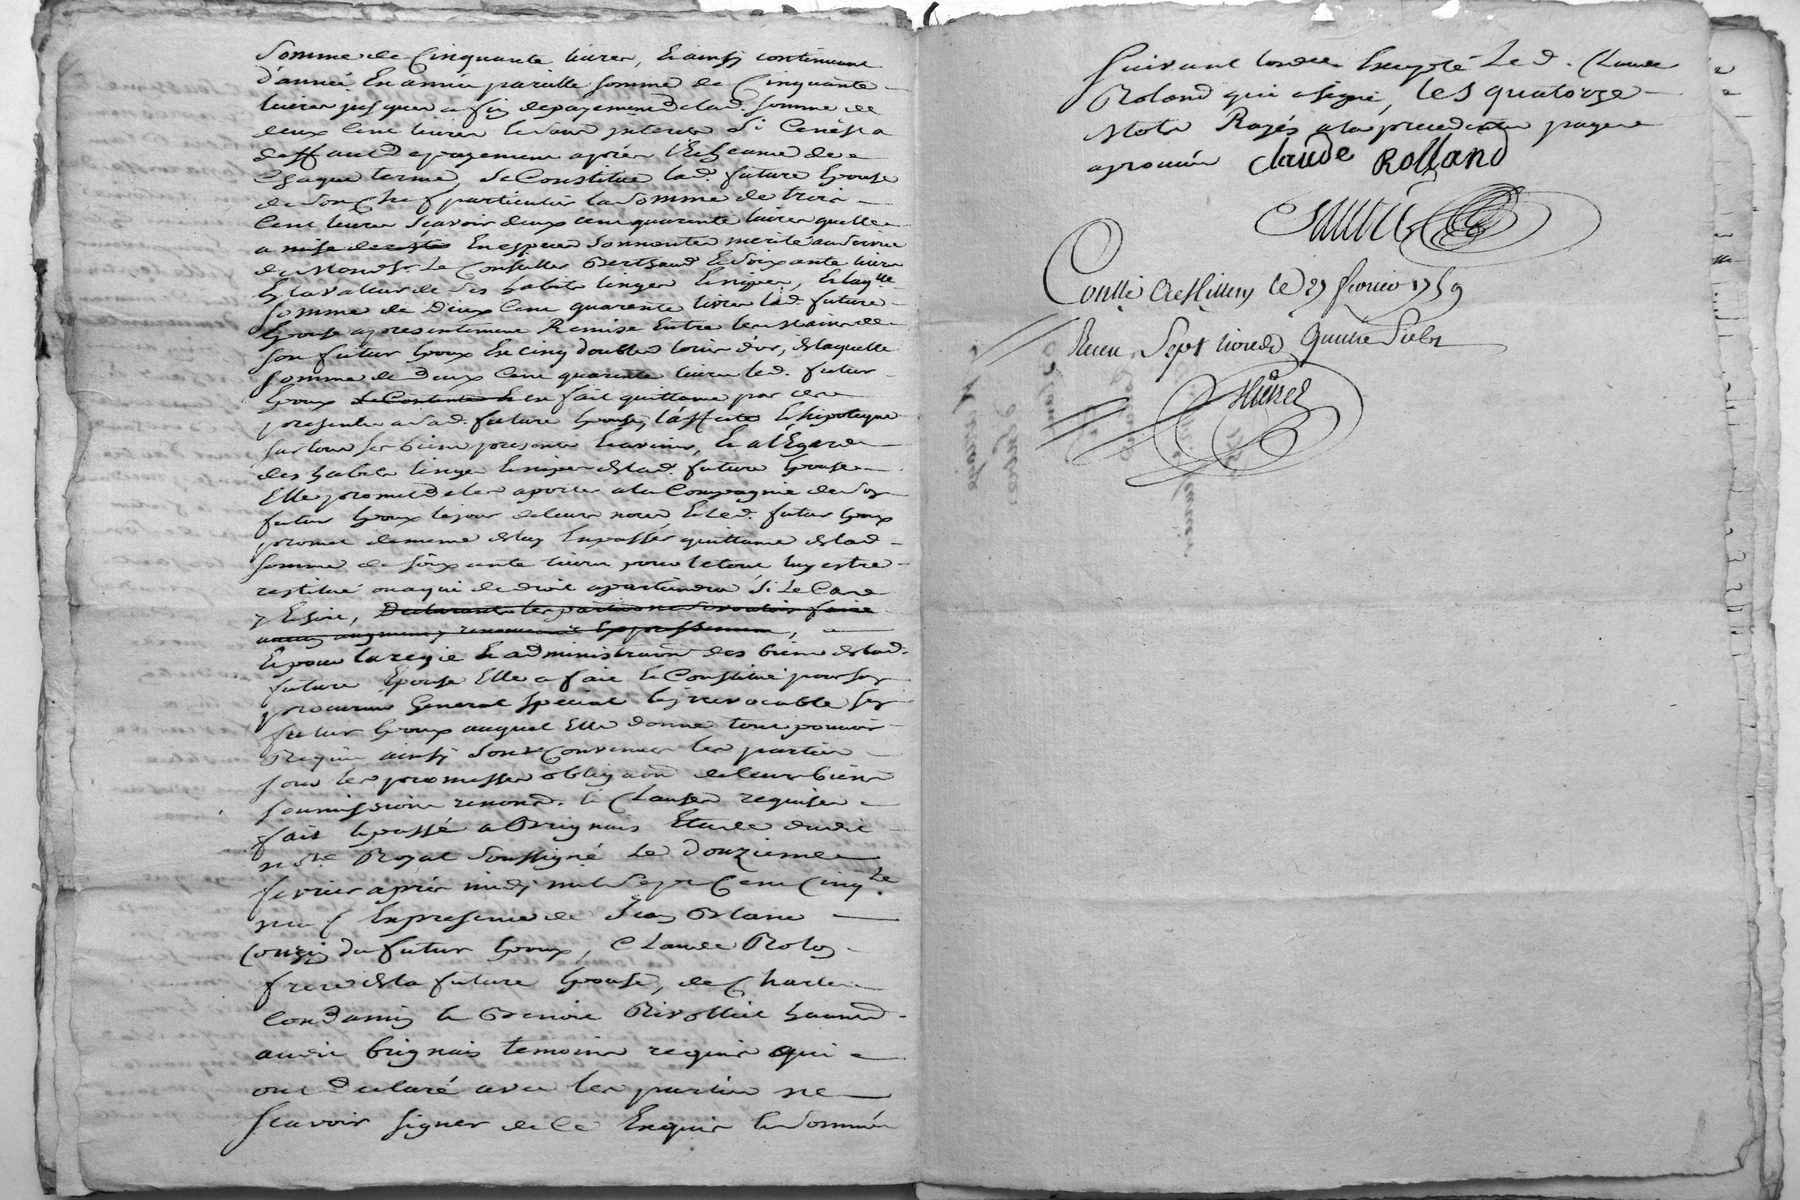 Somme de Cinquante livres, & ainsy continuant
d'année En année pareille somme de Cinquante
livres jusques a fin de payement de lad. somme de
deux Cent livres le tout sans interets Si Cen'est a
deffaut de payement apres l'Echeance de
Chaque terme, Se Constitue lad. future Epouse
de Son Chef particulier la Somme de trois
Cent livres Scavoir deux cent quarante livres quelle
a mise de coté En especes Sonnantes merité au Service
de Monsr. Le Conseiller Berthaud & Soixante livres
Et la valeur de Ses habits linges & nipes, & laqlle
somme de Deux Cent quarante livres lad. future
Epouse a presentement Remise Entre les Mains de
son futur Epoux En cinq doubles louis d'or, de laquelle
somme de deux Cent quarante livres led. futur
Epoux Se Contente & en fait quittance par ces
presentes a lad. future Epouse, l'affecte & hipoteque
sur tous ses biens presents & avenir, & a l'Egard
des habits linges & nipes de lad. future Epouse
Elle promet de les aporter a la Compagnie de Son
futur Epoux le jour de leurs noces & led. futur Epoux
promet de meme de luy En passer quittance de lad.
somme de soixante livres pour le tout luy estre
restitué ou a qui de droit apartiendra Si Le Cas
y Echoit, Declarants les parties ne vouloir faire
aucun augment y renoncant Expressement,
& pour la regie & administraon des biens de lad.
future Epouse Elle a fait & Constitué pour son
procureur General Special & irrevocable son
futur Epoux auquel Elle donne tout pouvoir
Requis ainsy Sont Convenues les parties
sous les promesses obligaon de leurs biens
soumissions renond. & Clauses requises
fait & passé a Brignais Etude dudit
notre Royal Soussigné Le Douzieme
fevrier apres midy mil Sept Cent Cinqte
neuf En presence de Jean Blanc
Couzin du futur Epoux, Claude Rolan
frere de la future Epouse, de Charles
Condamin & Benoit Rivollier
audit brignais temoins requis qui
ont declaré avec les parties ne
Scavoir signer de ce Enquis & Sommés
Suivant lordce Excepté Led. Claude
Roland qui a signé, les quatorze
Mots Rayés a la precedente page
aprouvés Claude Rolland
Conllé le 27 fevrier 1759
Recu Sept livres quatre Sols